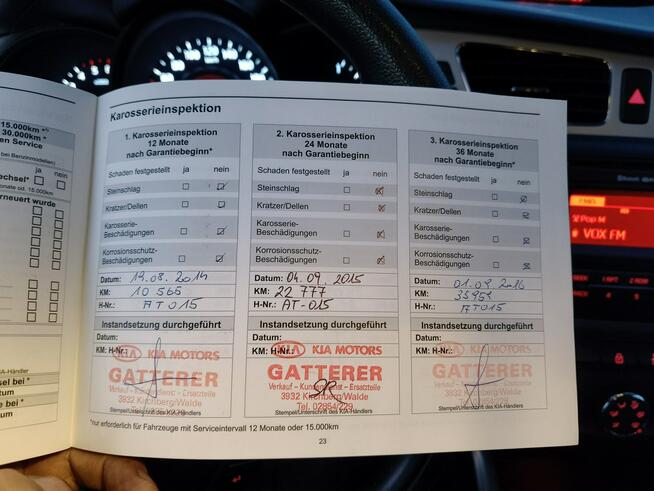 15.000km *¹
30.000km *
en Service
bei Benzinmodellen)
ja nein
echsel*
nate od. 15.000km
rneuert wurde
sel bei *
tum
e bei *
Datum
Karosserieinspektion
1. Karosserieinspektion
12 Monate
nach Garantiebeginn*
Schaden festgestellt ja nein
Steinschlag
Kratzer/Dellen
Karosserie-
Beschädigungen
Korrosionsschutz-
Beschädigungen
Datum: 19.08.2014
KM: 10 565
H-Nr.: AT015
Instandsetzung durchgeführt
Datum:
KM: H-Nr.:
KIA KIA MOTORS
GATTERER
Verkauf - Kundendienst - Ersatzteile
3932 Kirchberg/Walde
Stempel/Unterschrift des KIA-Händlers
2. Karosserieinspektion
24 Monate
nach Garantiebeginn
Schaden festgestellt ja nein
Steinschlag
Kratzer/Dellen
Karosserie-
Beschädigungen
Korrosionsschutz-
Beschädigungen
Datum: 04.09.2015
KM: 22 777
H-Nr.: AT-015
Instandsetzung durchgeführt
Datum:
KM: H-Nr.:
KIA KIA MOTORS
GATTERER
Verkauf - Kundendienst - Ersatzteile
3932 Kirchberg/Walde
Tel. 02854/229
Stempel/Unterschrift des KIA-Händlers
3. Karosserieinspektion
36 Monate
nach Garantiebeginn
Schaden festgestellt ja nein
Steinschlag
Kratzer/Dellen
Karosserie-
Beschädigungen
Korrosionsschutz-
Beschädigungen
Datum: 01.09.2016
KM:
H-Nr.: AT015
Instandsetzung durchgeführt
Datum:
KM: H-Nr.:
KIA KIA MOTORS
GATTERER
Verkauf - Kundendienst - Ersatzteile
3932 Kirchberg/Walde
Stempel/Unterschrift des KIA-Händlers
*nur erforderlich für Fahrzeuge mit Serviceintervall 12 Monate oder 15.000km
23
Pop M
VOX FM